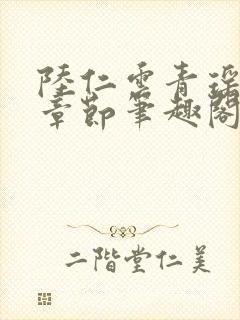 陸仁雲青瑶
章節筆趣閣
二階堂仁美